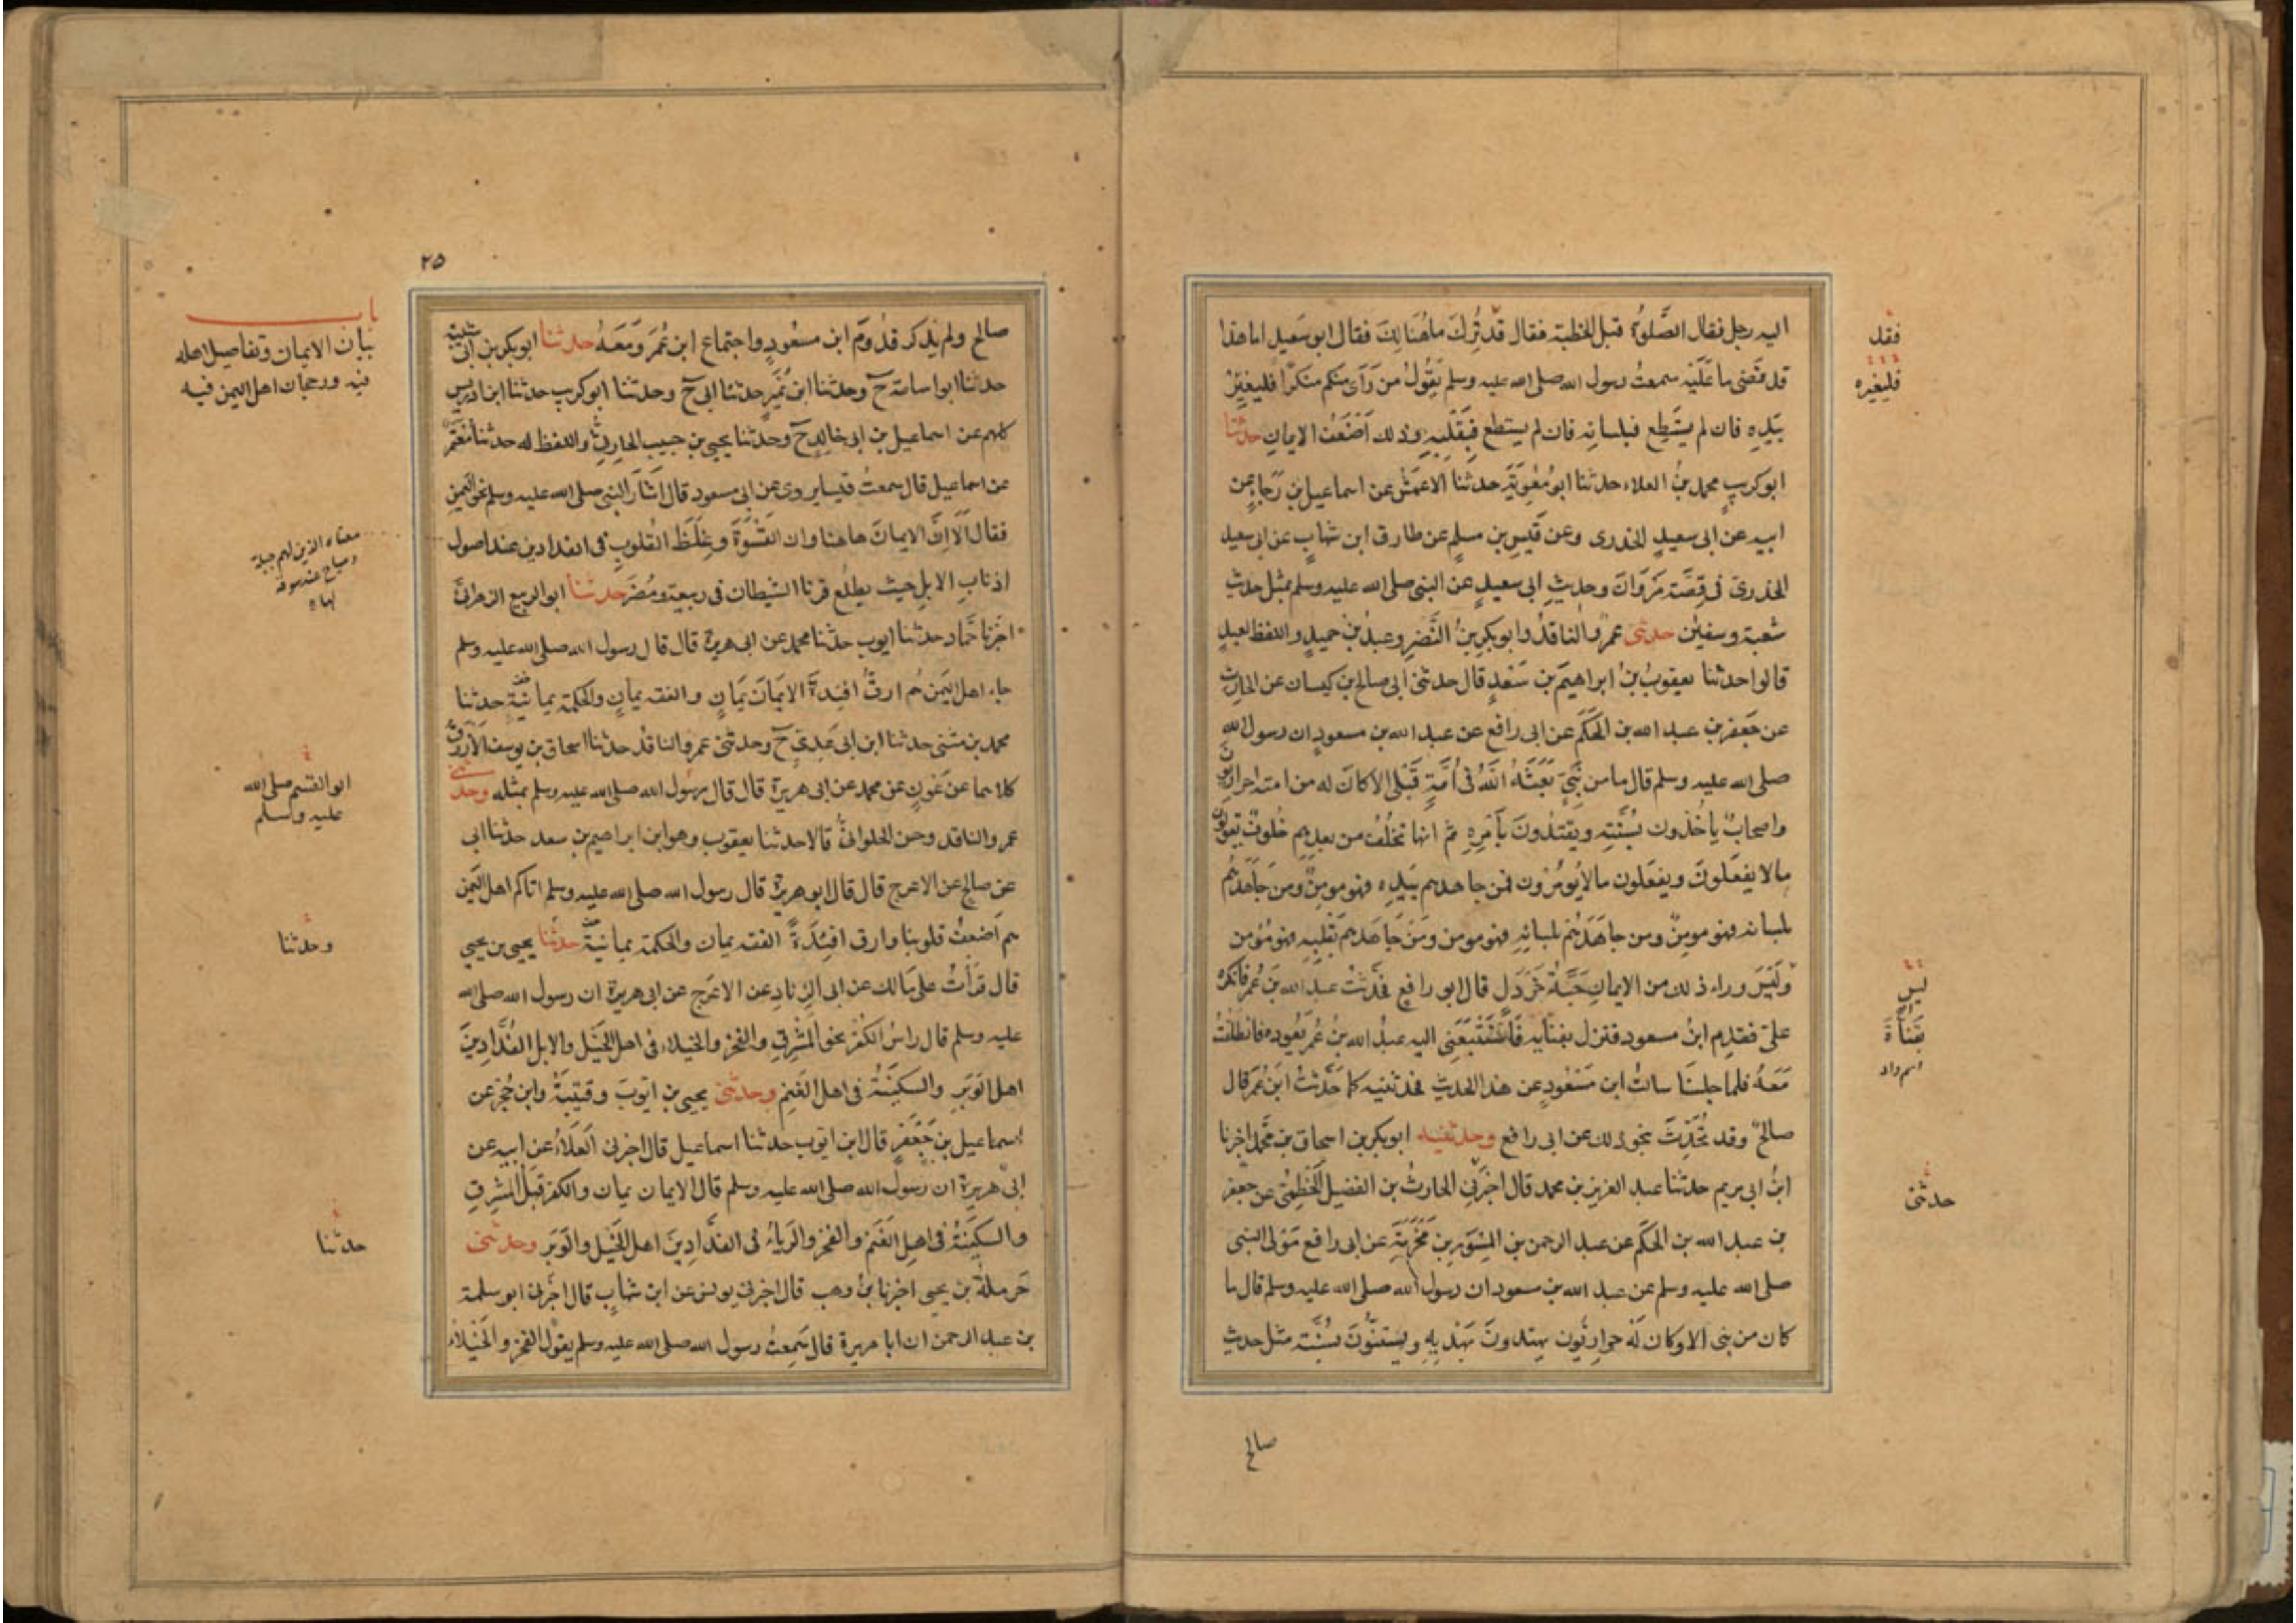 اليه رجل فقال الصَّلوةُ قبل الخطبة فقال قد تُرِكَ ماهُنَالِكَ فقال ابو سَعيد اما هذا
قد قَضى ما عَلَيْه سمعتُ رسول الله صلى الله عليه وسلم يَقُولُ من رَآى منكم منكرًا فليغيِّرْ
بيَدِه فان لم يَسْتَطِع فبلسانه فان لم يستطع فَبِقَلْبِهِ وذلك اَضْعَفُ الايمانِ حدثنا
ابو كريبٍ محمد بنُ العلاء حدثنا ابو مُعٰوِيَةَ حدثنا الاعمَشُ عن اسماعيل بن رَجاءٍ عن
ابيه عن ابى سعيدٍ الخدرى وعن قَيسِ بن مسلمٍ عن طارق ابن شهابٍ عن ابى سعيد
الخدرىّ فى قِصَّة مَرْوَانَ وحديثِ ابى سعيدٍ عن النبى صلى الله عليه وسلم بمثل حديث
شعبة وسفيٰن حدثنى عمرٌو الناقدُ وابو بكرِ بنُ النَّضرِ وعبدُ بنُ حميدٍ واللفظ لعبدٍ
قالوا حدثنا يعقوبُ بنُ ابراهيمَ بن سَعْدٍ قال حدثنى ابى صالح بن كيسان عن الحارث
عن جَعفر بن عبد الله بن الحَكَم عن ابى رافع عن عبد الله بن مسعودٍ ان رسول الله
صلى الله عليه وسلم قال ما من نَبِىٍّ بَعَثَهُ اللهُ فى اُمَّةٍ قَبْلى الا كانَ له من امته حواريّون
واصحابٌ يأخُذون بسُنَّتِه ويقتدُونَ بأَمرِه ثم انها تخلُفُ من بعدهم خُلوفٌ يقولون
ما لا يفعَلونَ ويفعَلون ما لا يُؤمَرُون فمن جاهدهم بيَدِه فهو مومنٌ ومن جَاهَدَهُم
بلسانه فهو مومنٌ ومن جاهَدَهُم بلسانِهِ فهو مومن ومَن جَاهَدهم بقَلبِه فهو مُؤمن
ولَيْسَ وراء ذلك من الايمانِ حَبَّةُ خَرْدَلٍ قال ابو رافعٍ فحَدّثتُ عبدَ الله بنَ عُمر فانكره
علىَّ فقدِم ابنُ مسعودٍ فنزل بفنآئِه فَاسْتَتْبَعَنِى اليه عبدُ الله بنُ عُمرَ يَعُوده فانطلقتُ
مَعَهُ فلما جلسنَا سالتُ ابن مَسْعُودٍ عن هذا الحديثِ فحدثنيه كما حَدَّثتُ ابنَ عُمَرَ قال
صالحٌ وقد تُحُدِّثَ بنحو ذلك عن ابى رافع وحدثنيه ابو بكر بن اسحاق بن محمّد اخبرنا
ابنُ ابى مريم حدثنا عبد العزيز بن محمد قال اخبَرنِى الحارثُ بن الفضيل الخَطمِىّ عن جعفر
بن عبد الله بن الحَكَم عن عبد الرحمن بن المِسْوَر بن مَخْرَمَةَ عن ابى رافع مَوْلى النبى
صلى الله عليه وسلم عن عبد الله بن مسعود ان رسول الله صلى الله عليه وسلم قال ما
كان من نبى الا وكان لَهُ حواريُّون يهتدون بهَدْيِهِ ويَستَنُّونَ بسُنَّتِه مثل حديث
صالح
فقل
فليغيره
ليس
بقناة
اسم واد
حدثنى
٢٥
صالحٍ ولم يَذكر قدُومَ ابن مسعُودٍ واجتماع ابن عُمَر وَمَعَهُ حدثنا ابو بكر بن ابى شيبة
حدثنا ابو اسامة ح وحدثنا ابن نُمَيرٍ حدثنا ابى ح وحدثنا ابو كريب حدثنا ابن ادريس
كلهم عن اسماعيل بن ابى خالدٍ ح وحدثنا يحيى بن حبيب الحارثىُّ واللفظ له حدثنا مُعْتَمِر
عن اسماعيل قال سمعتُ قيسا يروى عن ابى مسعود قال اَشَارَ النبى صلى الله عليه وسلم نحو اليَمنِ
فقال اَلَا اِنَّ الايمانَ هاهنا وان القَسْوَةَ وغِلَظَ القلوبِ فى الفدادين عند اصول
اذنابِ الابلِ حيث يطلُع قرنا الشيطان فى ربيعة ومُضَر حدثنا ابو الربيع الزهرانىّ
اخبَرنا حَمّاد حدثنا ايوب حدثنا محمد عن ابى هريرة قال قال رسول الله صلى الله عليه وسلم
جاء اهل اليَمن هُم ارقُّ افئدةً الايمَانُ يَمانٍ والفقه يمانٍ والحكمة يمانيةٌ حدثنا
محمد بن مثنى حدثنا ابن ابى عَدِىٍّ ح وحدثنى عمرو الناقدُ حدثنا اسحاق بن يوسف الاَزْرَقُ
كلاهما عن عَونٍ عن محمد عن ابى هريرة قال قال رسُول الله صلى الله عليه وسلم بمثله وحدثنى
عمرو الناقد وحسن الحلوانىُّ قالا حدثنا يعقوب وهو ابن ابراهيم بن سعد حدثنا ابى
عن صالح عن الاعرج قال قال ابو هريرة قال رسول الله صلى الله عليه وسلم اتاكم اهل اليَمن
هم اَضعفُ قلوبنا وارق افئِدَةً الفقه يمان والحكمة يمانيةٌ حدثنا يحيى بن يحيى
قال قرَأتُ على مالك عن ابى الزنادِ عن الاعرَج عن ابى هريرة ان رسول الله صلى الله
عليه وسلم قال راسُ الكُفر نحو المَشْرِقِ والفَخر والخيلاء فى اهل الخَيل والابل الفَدَّادِينَ
اهل الوَبَرِ والسكينَةُ فى اهل الغَنمِ وحدثنى يحيى بن ايوبَ وقتيبَةُ وابن حُجْر عن
اسماعيل بن جَعْفَرٍ قال ابن ايوب حدثنا اسماعيل قال اخبرنى العَلَاءُ عن ابيه عن
ابى هريرة ان رسول الله صلى الله عليه وسلم قال الايمان يمان والكفر قِبَلَ المشرقِ
والسكينَةُ فى اهلِ الغَنَم والفخرُ والرياءُ فى الفَدَّادينَ اهل الخَيل والوَبَرِ وحدثنى
حَرملةُ بن يحيى اخبرنا بنُ وهب قال اخبرنى يونس عن ابن شهابٍ قال اخبَرنى ابو سلمة
بن عبد الرحمن ان ابا هريرة قال سَمِعتُ رسول الله صلى الله عليه وسلم يقوُل الفخر والخيلاء
باب
بيان الايمان وتفاصيل اهله
فيه ورجحان اهل اليمن فيه
معناه الذين لهم جلبة
وصياح عند سوقه
ابو القسم صلى الله
عليه وسلم
وحدثنا
حدثنا